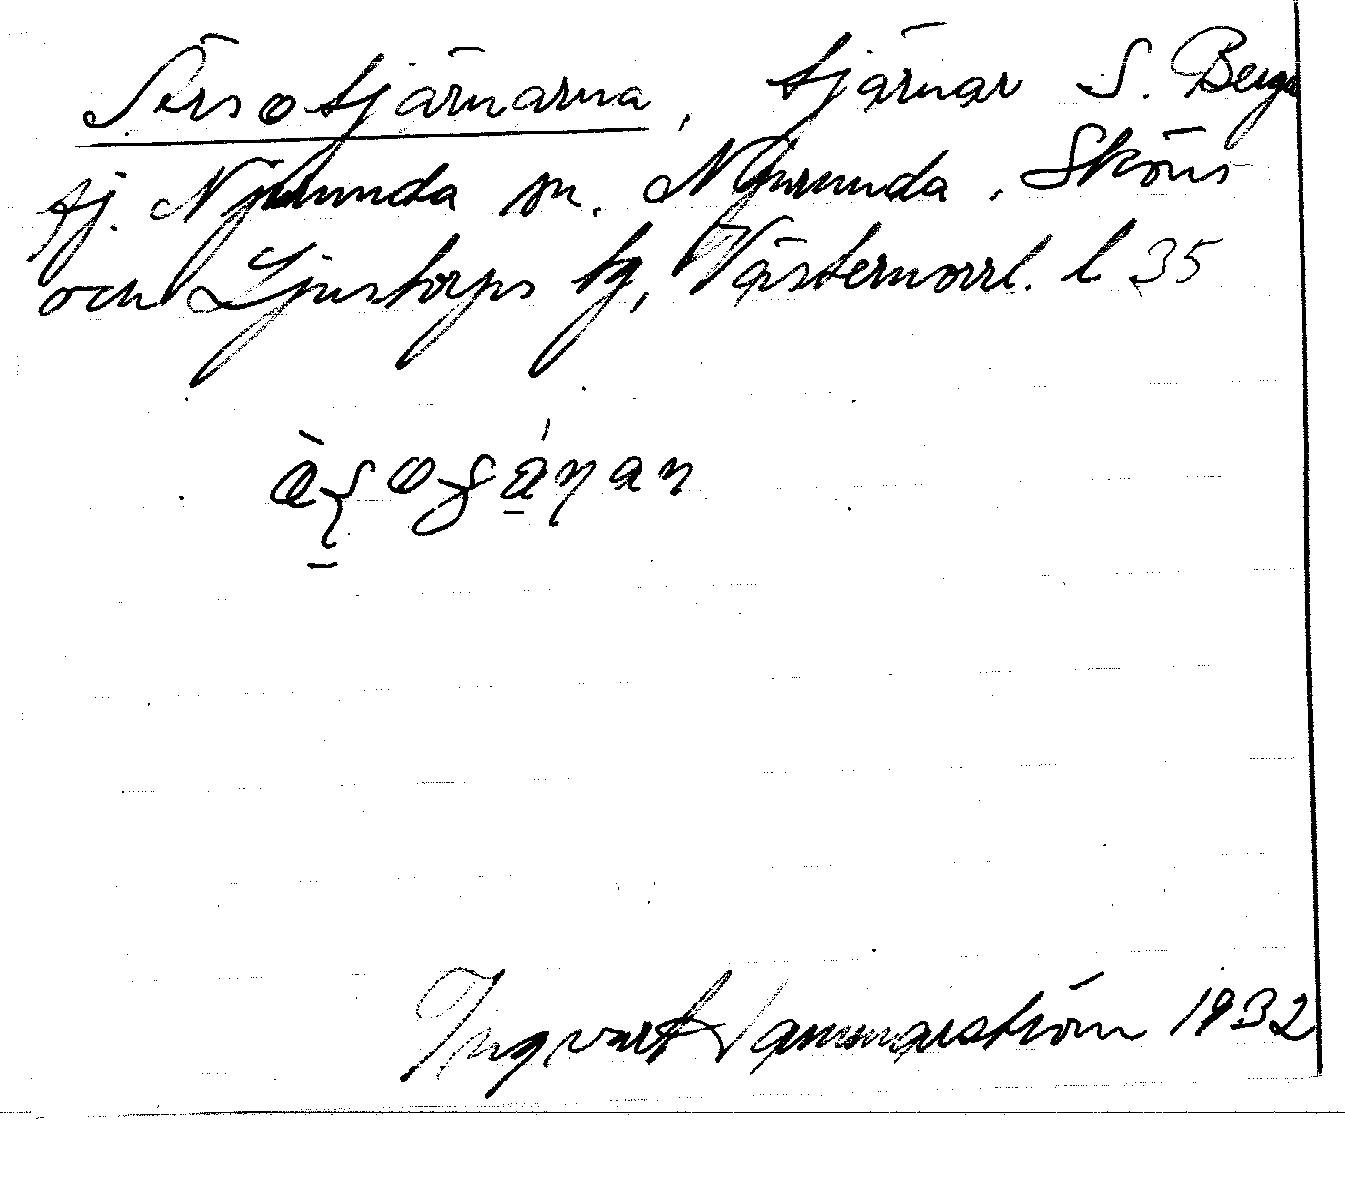 Örsotjärnarna, tjärnar S. Berge
fj. Njurunda sn. Njurunda, Sköns
och Ljustorps tg, Västernorrl. l 35
Ingvart Hammarström 1932